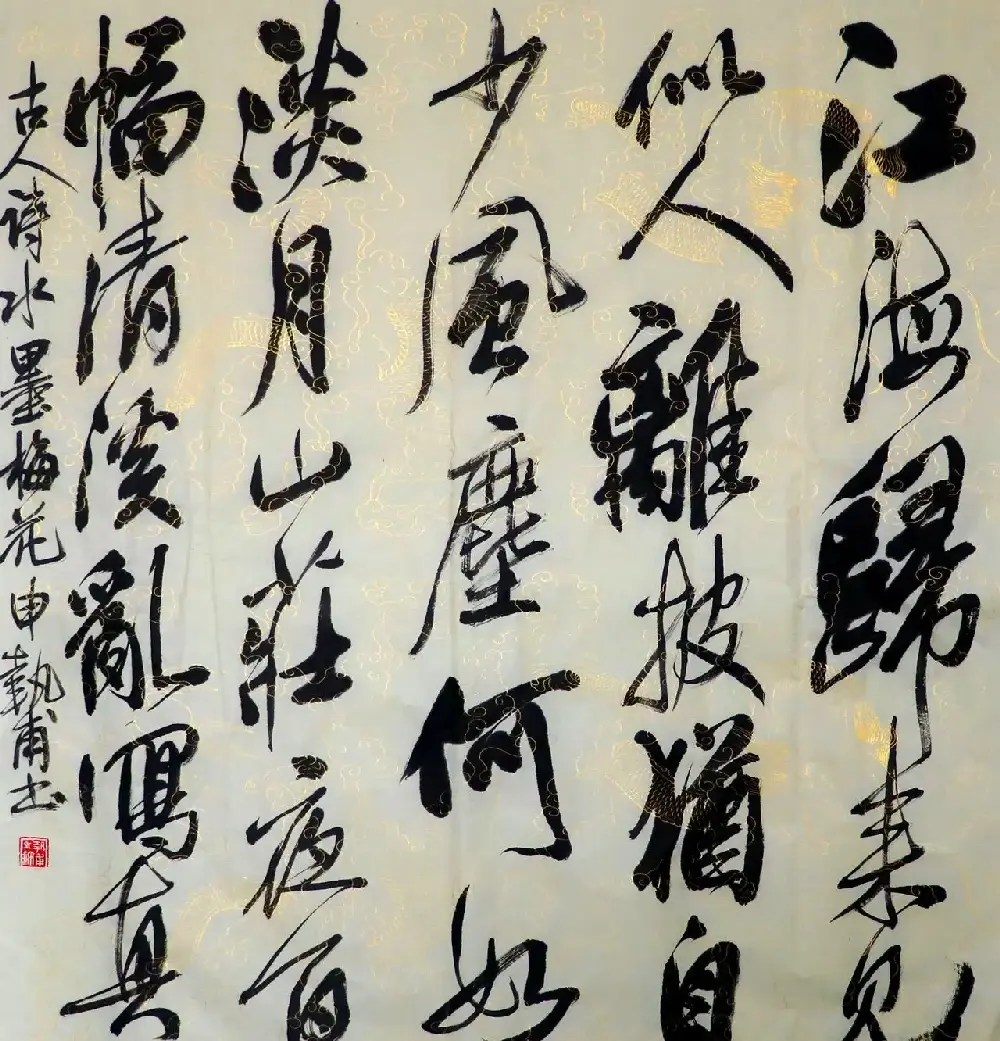 江海歸来見
似人離披猶自
少風塵何如
淡月山莊夜百
幅清溪亂寫真
古人詩水墨梅花申執甫书